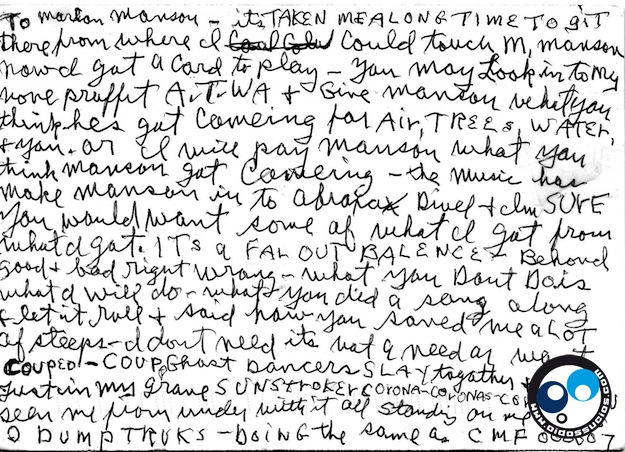 To marlon manson – its TAKEN ME A LONG TIME TO GIT
there from where I Could touch M, manson
now I got a Card to play – you may Look in to My
none proffit A.T.W.A & Give manson what you
think hes got Comeing for Air, TREES, WATER,
& you. or I will pay manson what you
think manson got Comeing – the music has
make manson in to Abraxas Divel & I'm SURE
you would want some of what I got from
what I got. ITs a FAR OUT BALENCE – Behond
good & bad right wrong – what you Dont Do is
what I will do – what you did a song along
& let it roll & said how you saved me a LOT
of steeps – I dont need its not a need or
COUPED – COUP. Ghost DANCERS SLAY together &
just in my grave SUNSTROKER CORONA-CORONAS-
seen me from under with it all standing on
DUMP TRUKS – DOING the same as CMF 000007
WWW.DIOSSTUDIOS.COM